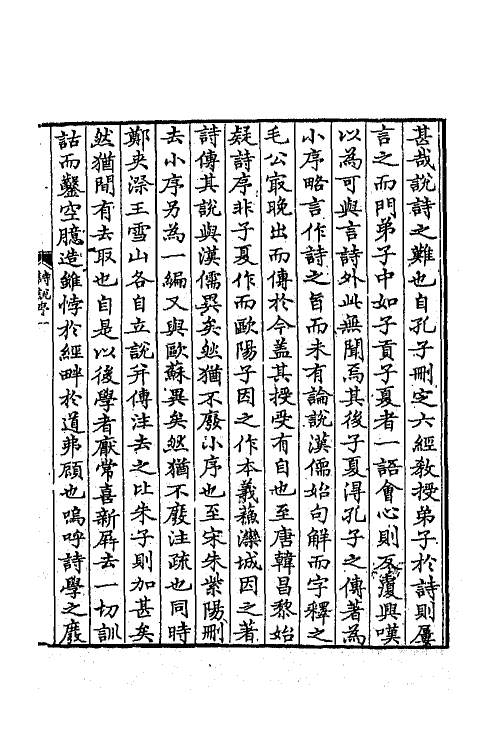 甚哉說詩之難也自孔子刪定六經教授弟子於詩則屢
言之而門弟子中如子貢子夏者一語會心則亟賡興嘆
以為可與言詩外此無聞焉其後子夏得孔子之傳著為
小序略言作詩之旨而未有論說漢儒始句解而字釋之
毛公㝡晚出而傳於今蓋其授受有自也至唐韓昌黎始
疑詩序非子夏作而歐陽子因之作本義蘓灤城因之著
詩傳其說與漢儒異矣然猶不廢小序也至宋朱紫陽刪
去小序另為一編又與歐蘇異矣然猶不廢注疏也同時
鄭夾漈王雪山各自立說并傳注去之比朱子則加甚矣
然猶間有去取也自是以後學者厭常喜新屏去一切訓
詁而鑿空臆造雖悖於經畔於道弗顧也嗚呼詩學之廢
詩說序 一